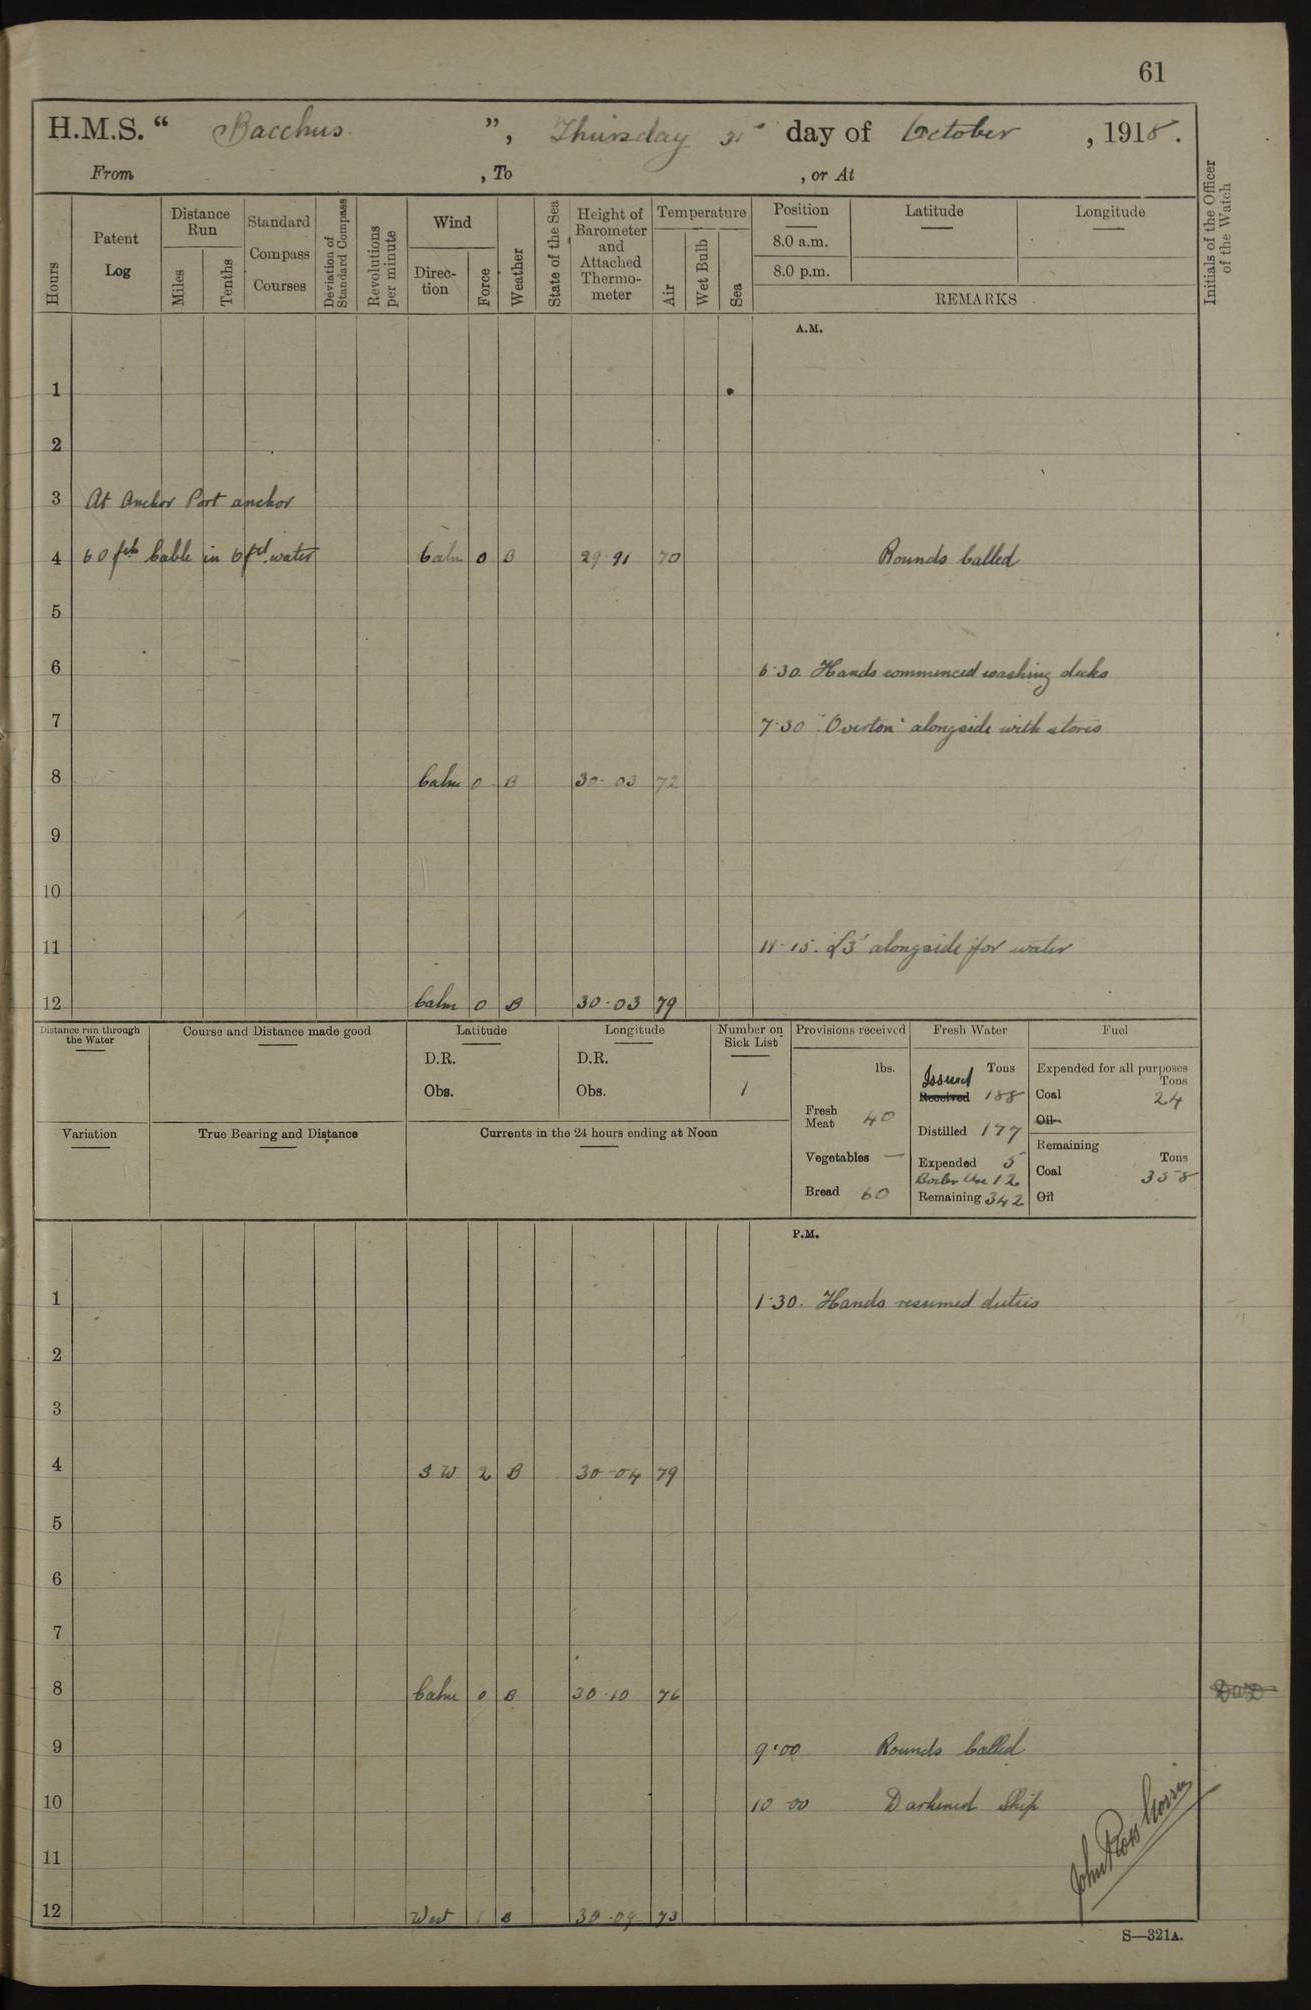 61
H.M.S. “ Bacchus ”, Thursday 31st day of October , 1918.
From , To , or At
Hours
Patent Log
Distance Run
Miles
Tenths
Standard Compass Courses
Deviation of Standard Compass
Revolutions per minute
Wind
Direction
Force
Weather
State of the Sea
Height of Barometer and Attached Thermometer
Temperature
Air
Wet Bulb
Sea
Position
8.0 a.m.
8.0 p.m.
Latitude
Longitude
REMARKS
Initials of the Officer of the Watch
A.M.
1
2
3 At Anchor Port anchor
4 60 fth Cable in 6 fth water Calm 0 B 29·91 70 Rounds Called
5
6 6·30 Hands commenced washing decks
7 7·30 "Overton" alongside with stores
8 Calm 0 B 30·03 72
9
10
11 11-15. L3' alongside for water
12 Calm 0 B 30·03 79
Distance run through the Water
Course and Distance made good
Latitude
D.R.
Obs.
Longitude
D.R.
Obs.
Number on Sick List
1
Variation
True Bearing and Distance
Currents in the 24 hours ending at Noon
Provisions received
lbs.
Fresh Meat 40
Vegetables —
Bread 60
Fresh Water
Tons
Issued
Received 188
Distilled 177
Expended 5
Boiler Use 12
Remaining 342
Fuel
Expended for all purposes
Tons
Coal 24
Oil
Remaining
Tons
Coal 358
Oil
P.M.
1 1·30. Hands resumed duties
2
3
4 SW 2 B 30-04 79
5
6
7
8 Calm 0 B 30·10 76
9 9·00 Rounds Called
10 10-00 Darkened Ship
11
12 West 1 B 30-09 73
S—321A.